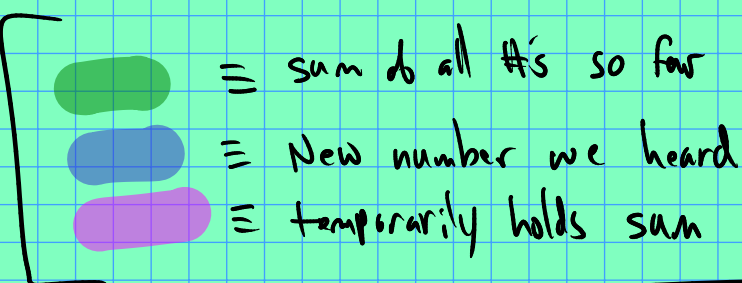 ≡ sum of all #'s so far
≡ New number we heard
≡ temporarily holds sum